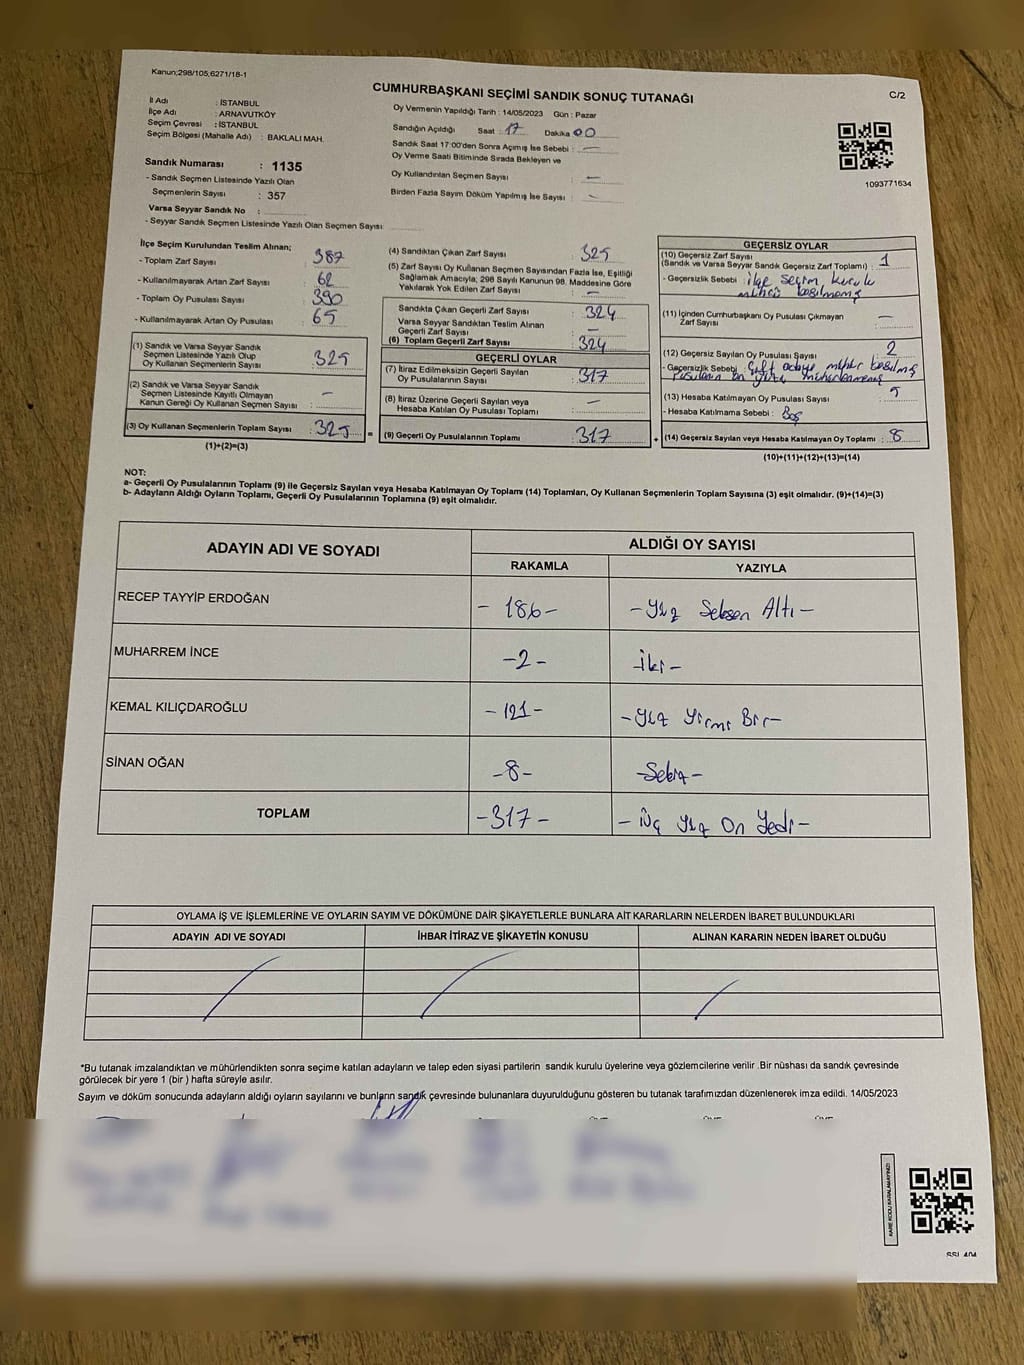 Kanun;298/105,6271/18-1
CUMHURBAŞKANI SEÇİMİ SANDIK SONUÇ TUTANAĞI
C/2
İl Adı : İSTANBUL
İlçe Adı : ARNAVUTKÖY
Seçim Çevresi : İSTANBUL
Seçim Bölgesi (Mahalle Adı) : BAKLALI MAH.
Sandık Numarası : 1135
- Sandık Seçmen Listesinde Yazılı Olan
Seçmenlerin Sayısı : 357
Varsa Seyyar Sandık No :
- Seyyar Sandık Seçmen Listesinde Yazılı Olan Seçmen Sayısı:
Oy Vermenin Yapıldığı Tarih : 14/05/2023 Gün : Pazar
Sandığın Açıldığı Saat : 17 Dakika 00
Sandık Saat 17:00'den Sonra Açımış İse Sebebi : —
Oy Verme Saati Bitiminde Sırada Bekleyen ve
Oy Kullandırılan Seçmen Sayısı : —
Birden Fazla Sayım Döküm Yapılmış İse Sayısı : —
1093771634
İlçe Seçim Kurulundan Teslim Alınan;
- Toplam Zarf Sayısı : 387
- Kullanılmayarak Artan Zarf Sayısı : 62
- Toplam Oy Pusulası Sayısı : 390
- Kullanılmayarak Artan Oy Pusulası : 65
(1) Sandık ve Varsa Seyyar Sandık
Seçmen Listesinde Yazılı Olup
Oy Kullanan Seçmenlerin Sayısı : 325
(2) Sandık ve Varsa Seyyar Sandık
Seçmen Listesinde Kayıtlı Olmayan
Kanun Gereği Oy Kullanan Seçmen Sayısı : —
(3) Oy Kullanan Seçmenlerin Toplam Sayısı : 325
(1)+(2)=(3)
(4) Sandıktan Çıkan Zarf Sayısı : 325
(5) Zarf Sayısı Oy Kullanan Seçmen Sayısından Fazla İse, Eşitliği
Sağlamak Amacıyla, 298 Sayılı Kanunun 98. Maddesine Göre
Yakılarak Yok Edilen Zarf Sayısı : —
Sandıkta Çıkan Geçerli Zarf Sayısı : 324
Varsa Seyyar Sandıktan Teslim Alınan
Geçerli Zarf Sayısı : —
(6) Toplam Geçerli Zarf Sayısı : 324
GEÇERLİ OYLAR
(7) İtiraz Edilmeksizin Geçerli Sayılan
Oy Pusulalarının Sayısı : 317
(8) İtiraz Üzerine Geçerli Sayılan veya
Hesaba Katılan Oy Pusulası Toplamı : —
(9) Geçerli Oy Pusulalarının Toplamı : 317
GEÇERSİZ OYLAR
(10) Geçersiz Zarf Sayısı
(Sandık ve Varsa Seyyar Sandık Geçersiz Zarf Toplamı) : 1
- Geçersizlik Sebebi : ilçe seçim kurulu
mührü basılmamış
(11) İçinden Cumhurbaşkanı Oy Pusulası Çıkmayan
Zarf Sayısı : —
(12) Geçersiz Sayılan Oy Pusulası Sayısı : 2
- Geçersizlik Sebebi : Çift adaya mühür basılmış
Pusulanın ön yüzü mühürlenmemiş
(13) Hesaba Katılmayan Oy Pusulası Sayısı : 5
- Hesaba Katılmama Sebebi : Boş
(14) Geçersiz Sayılan veya Hesaba Katılmayan Oy Toplamı : 8
(10)+(11)+(12)+(13)=(14)
NOT:
a- Geçerli Oy Pusulalarının Toplamı (9) ile Geçersiz Sayılan veya Hesaba Katılmayan Oy Toplamı (14) Toplamları, Oy Kullanan Seçmenlerin Toplam Sayısına (3) eşit olmalıdır. (9)+(14)=(3)
b- Adayların Aldığı Oyların Toplamı, Geçerli Oy Pusulalarının Toplamına (9) eşit olmalıdır.
ADAYIN ADI VE SOYADI
ALDIĞI OY SAYISI
RAKAMLA YAZIYLA
RECEP TAYYİP ERDOĞAN - 186 - - Yüz Seksen Altı -
MUHARREM İNCE - 2 - İki -
KEMAL KILIÇDAROĞLU - 121 - - Yüz Yirmi Bir -
SİNAN OĞAN - 8 - - Sekiz -
TOPLAM - 317 - - Üç Yüz On Yedi -
OYLAMA İŞ VE İŞLEMLERİNE VE OYLARIN SAYIM VE DÖKÜMÜNE DAİR ŞİKAYETLERLE BUNLARA AİT KARARLARIN NELERDEN İBARET BULUNDUKLARI
ADAYIN ADI VE SOYADI İHBAR İTİRAZ VE ŞİKAYETİN KONUSU ALINAN KARARIN NEDEN İBARET OLDUĞU
*Bu tutanak imzalandıktan ve mühürlendikten sonra seçime katılan adayların ve talep eden siyasi partilerin sandık kurulu üyelerine veya gözlemcilerine verilir .Bir nüshası da sandık çevresinde
görülecek bir yere 1 (bir ) hafta süreyle asılır.
Sayım ve döküm sonucunda adayların aldığı oyların sayılarını ve bunların sandık çevresinde bulunanlara duyurulduğunu gösteren bu tutanak tarafımızdan düzenlenerek imza edildi. 14/05/2023
KARE KODU KARALAMAYINIZ!